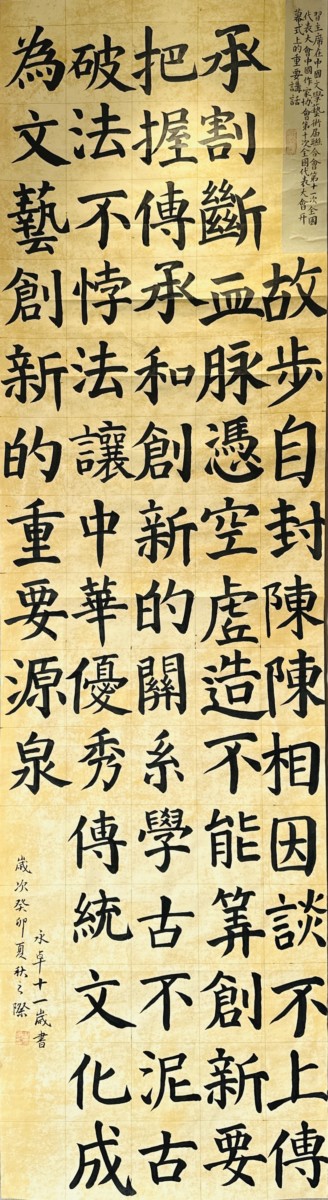 習主席在中國文學藝術届聯合會第十一次全國
代表大會中國作家协會第十次全國代表大會开
幕式上的重要講話
故步自封陳陳相因談不上傳
承割斷血脉憑空虛造不能筭創新要
把握傳承和創新的關系學古不泥古
破法不悖法讓中華優秀傳統文化成
為文藝創新的重要源泉
永卓十一歲書
歲次癸卯夏秋之際